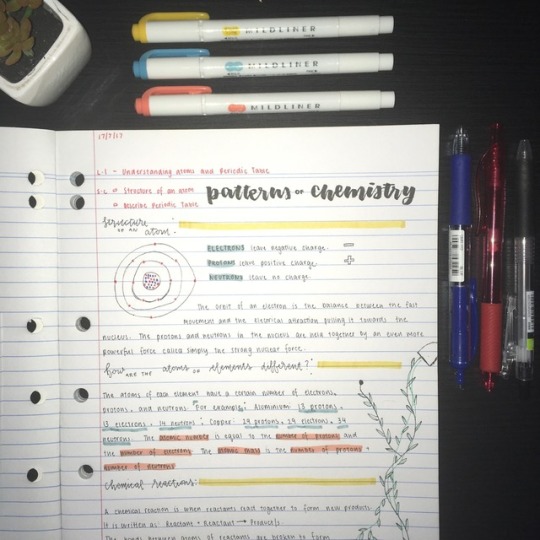 MILDLINER
MILDLINER
MILDLINER
17/7/17
L.I - Understanding Atoms and Periodic Table
S.C □ Structure of an atom
□ Describe Periodic Table
patterns OF chemistry
structure OF AN atom:
ELECTRONS have negative charge. −
PROTONS have positive charge. +
NEUTRONS have no charge.
The orbit of an electron is the balance between the fast
movement and the electrical attraction pulling it towards the
nucleus. The protons and neutrons in the nucleus are held together by an even more
powerful force called simply the strong nuclear force.
how ARE THE atoms OF elements different?:
The atoms of each element have a certain number of electrons,
protons, and neutrons. For example: Aluminium 13 protons,
13 electrons, 14 neutrons; Copper 29 protons, 29 electrons, 34
neutrons. The atomic number is equal to the number of protons and
the number of electrons. The atomic mass is the number of protons +
number of neutrons
chemical reactions:
A chemical reaction is when reactants react together to form new products.
It is written as: Reactant + Reactant → Product/s
The bonds between atoms of reactants are broken to form